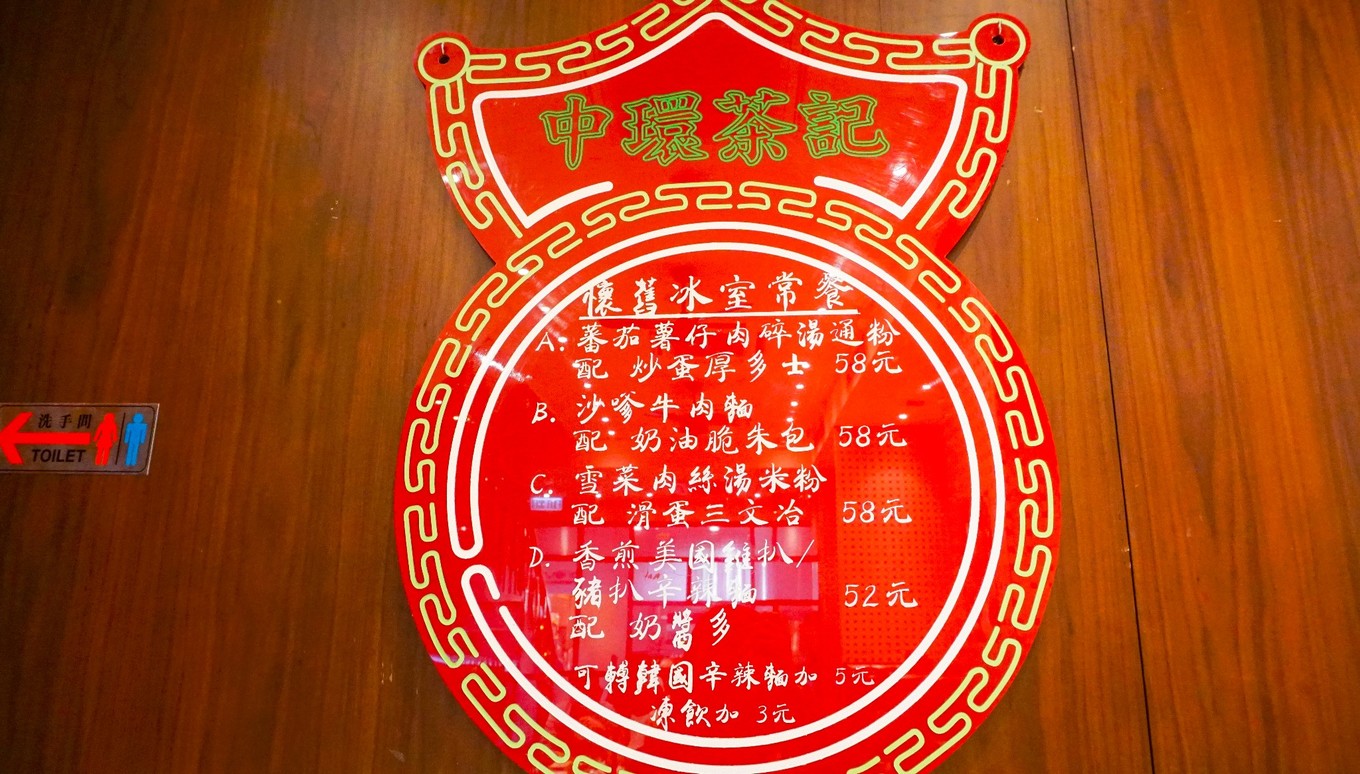 中環茶記
懷舊冰室常餐
A. 蕃茄薯仔肉碎湯通粉
配 炒蛋厚多士 58元
B. 沙嗲牛肉麵
配 奶油脆朱包 58元
C. 雪菜肉絲湯米粉
配 滑蛋三文治 58元
D. 香煎美國雞扒/
豬扒辛辣麵 52元
配 奶醬多
可轉韓國辛辣麵加 5元
凍飲加 3元
洗手間
TOILET